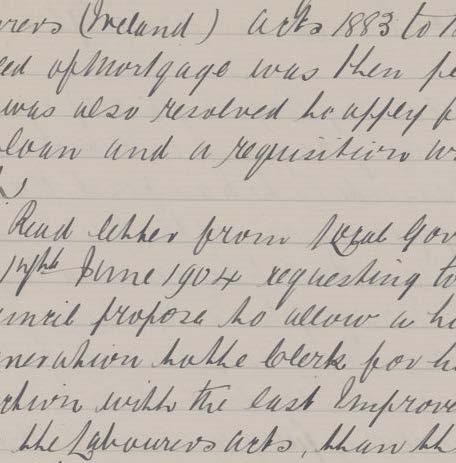 urers (Ireland) Acts 1883 to 1
eed of Mortgage was then pe
was also resolved to apply f
loan and a requisition w
Read letter from Local Gov
June 1904 requesting to
uncil propose to allow a h
neration to the Clerk for h
ction with the last Improve
the Labourers Acts, than th